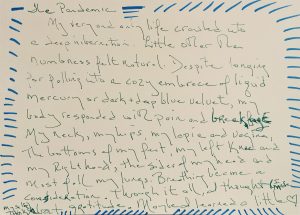 The Pandemic
My very and only life crashed into
a deep hibernation. Little other than
numbness felt natural. Despite longing
for falling into a cozy embrace of liquid
mercury or dark + deep blue velvets, my
body responded with pain and breakage
My neck, my hips my spine and
The bottoms of my feet, my left knee and
my right side, the sides of my head and
most of all my lungs. Breathing became a
consideration. Through it all I thought
gratitude. Maybe I learned a little